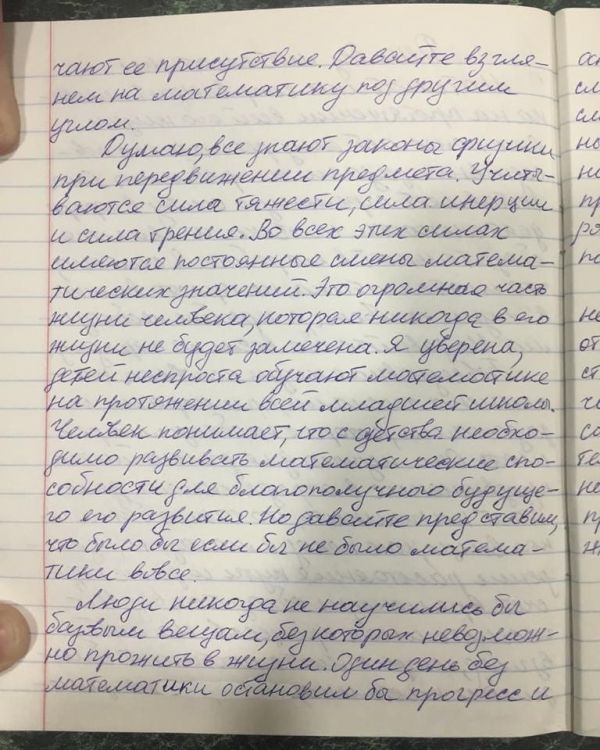 чают ее присутствие. Давайте взгля-
нем на математику под другим
углом.
Думаю, все знают законы физики
при передвижении предмета. Учиты-
ваются сила тяжести, сила инерции
и сила трения. Во всех этих силах
имеются постоянные смены матема-
тических значений. Это огромная часть
жизни человека, которая никогда в его
жизни не будет замечена. Я уверена,
детей неспроста обучают математике
на протяжении всей младшей школы.
Человек понимает, что с детства необхо-
димо развивать математические спо-
собности для благополучного будуще-
го его развития. Но давайте представим,
что было бы если бы не было матема-
тики вовсе.
Люди никогда не научились бы
базвым вещам, без которых невозмож-
но прожить в жизни. Один день без
математики остановим бы прогресс и